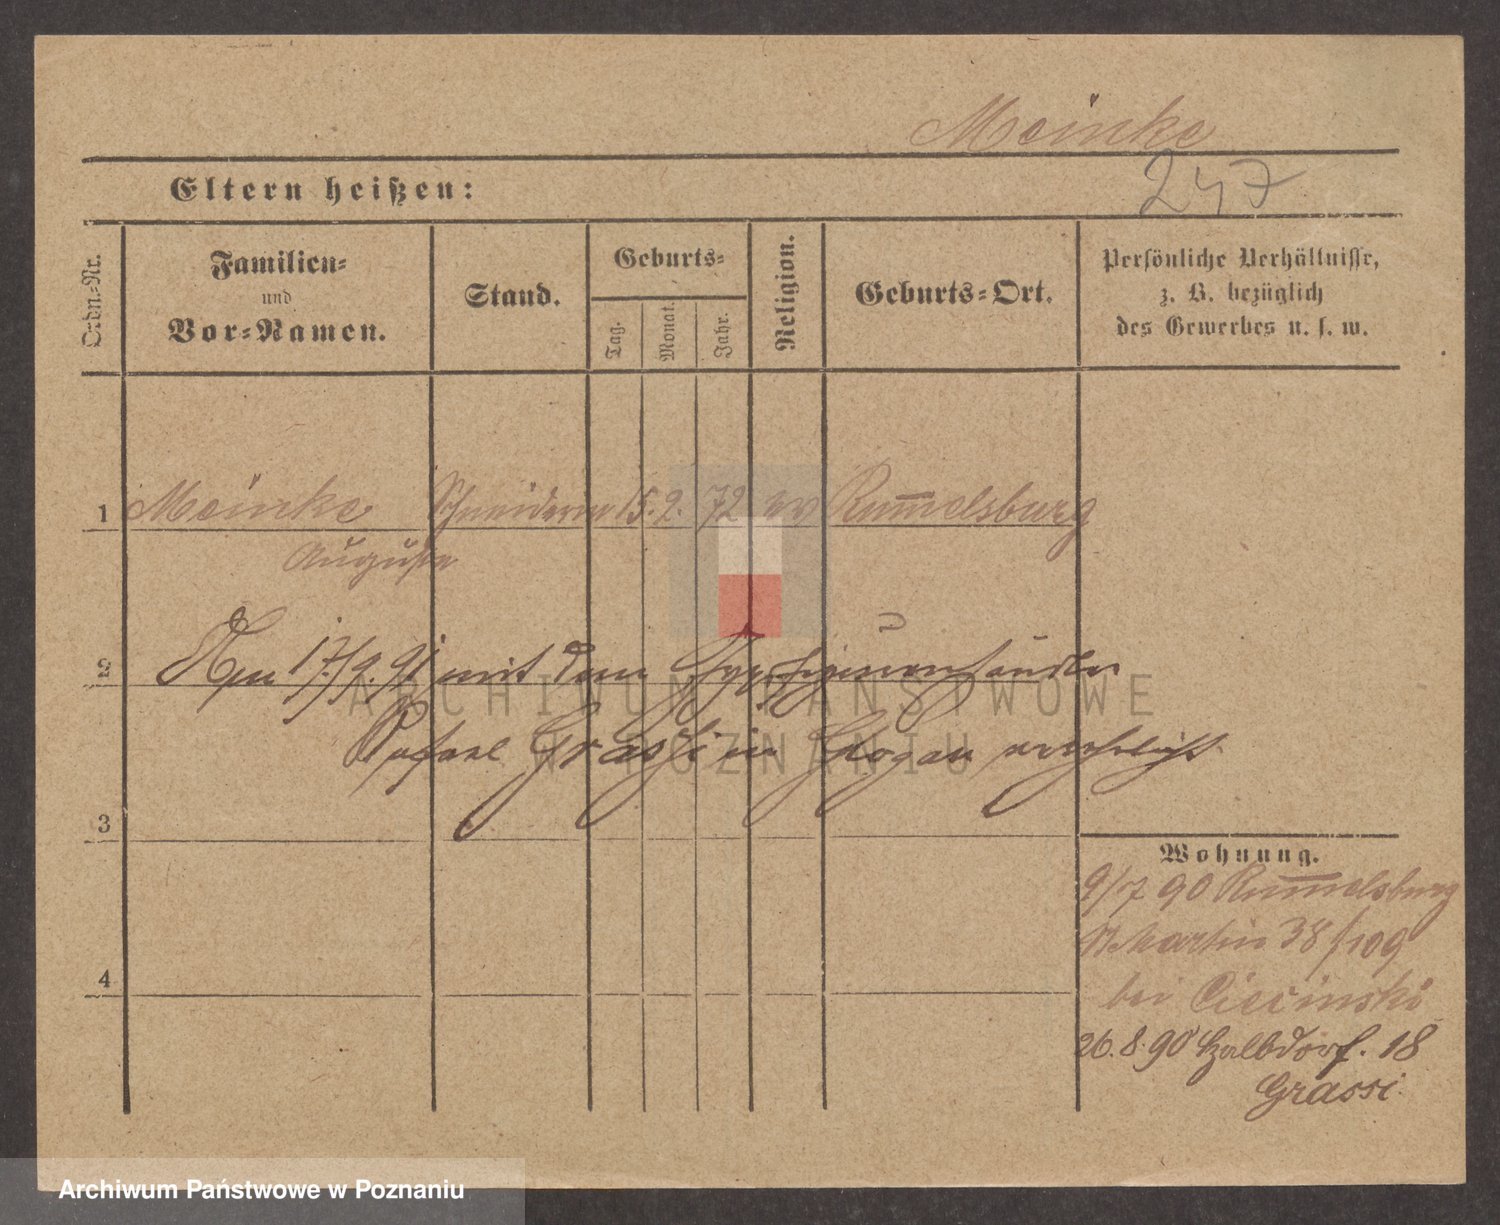 Meinke
247
Eltern heißen:
Ordn.-Nr.
Familien-
und
Vor-Namen.
Stand.
Geburts-
Tag.
Monat.
Jahr.
Religion.
Geburts-Ort.
Persönliche Verhältnisse,
z. B. bezüglich
des Gewerbes u. s. w.
1 Meinke Schneiderin 15. 2. 72 ev Rum̅elsburg
Auguste
2 Am 17/9. 91 mit dem Gypsfigurenhändler
Rafael Grassi in Glogau verehelicht
3
4
Wohnung.
9/7 90 Rum̅elsburg
St Martin 38 f 109
bei Ciecinski
26. 8. 90 Halbdorf. 18
Grassi.
ARCHIWUM PAŃSTWOWE
W POZNANIU
Archiwum Państwowe w Poznaniu